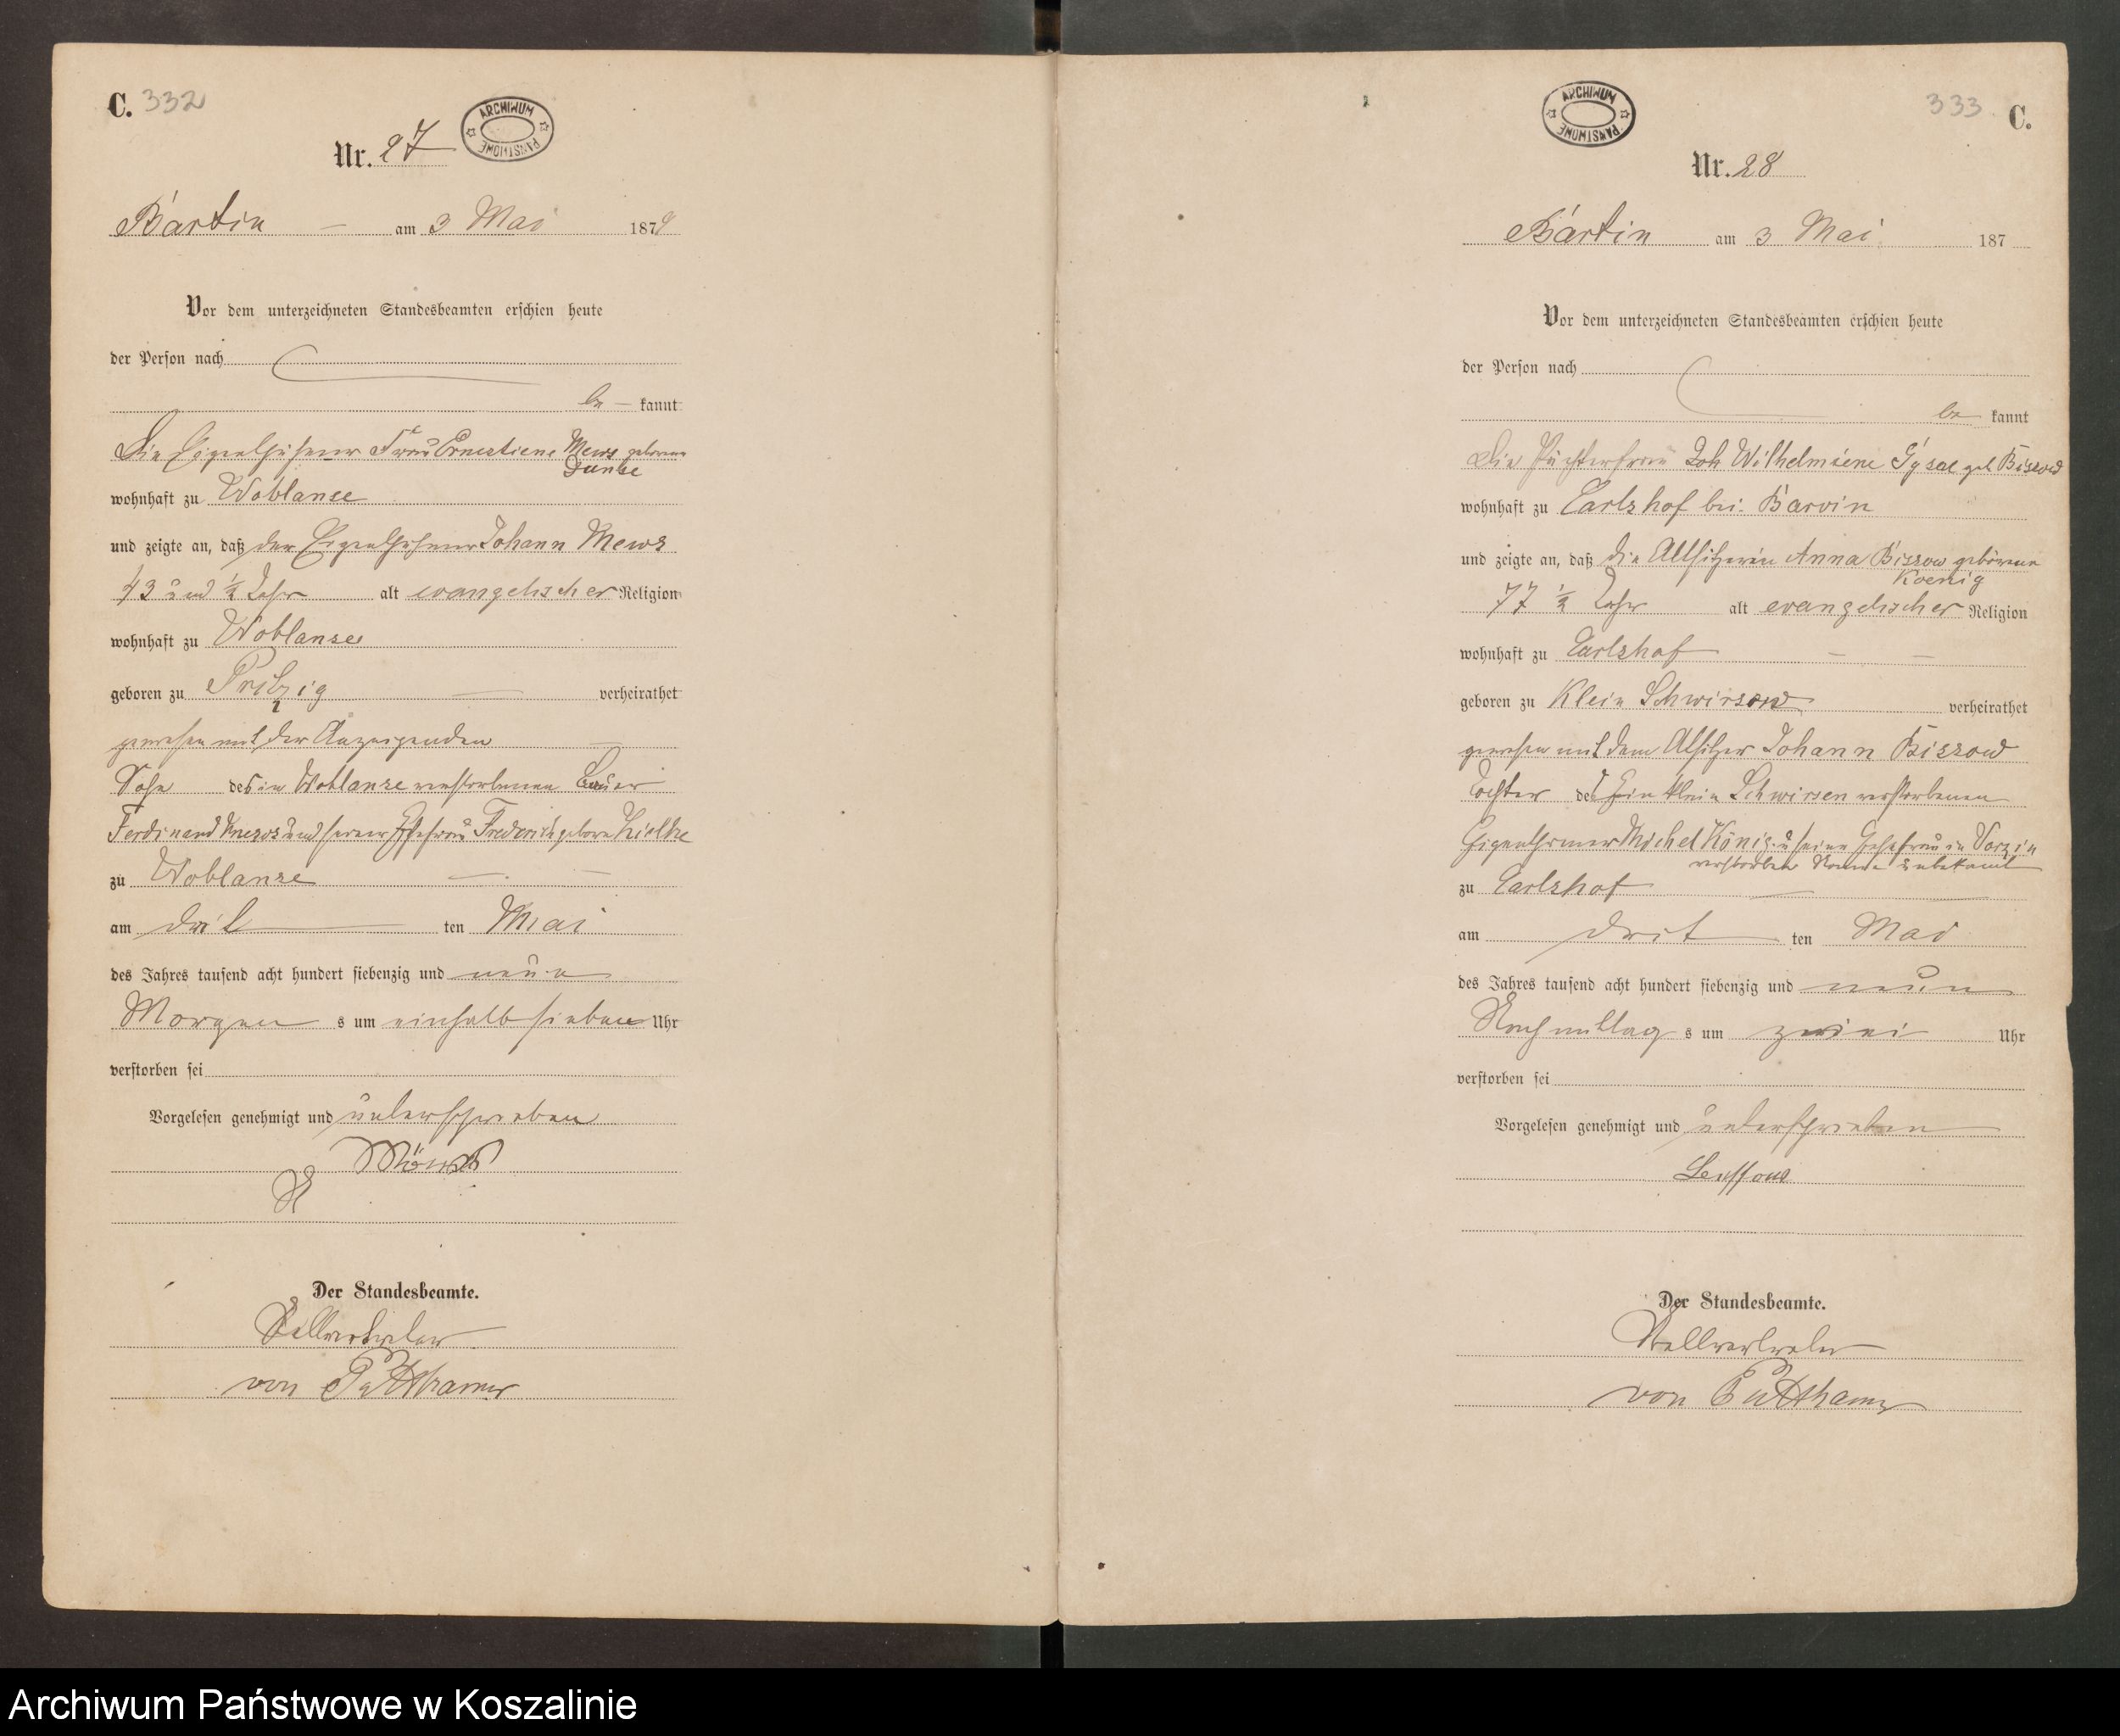 C. 332
ARCHIWUM PAŃSTWOWE
Nr. 27
Bartin am 3 Mai 1879
Vor dem unterzeichneten Standesbeamten erschien heute
der Person nach
be kannt
Die Eigenthümer Frau Ernestiene Mews geborene
Dunse
wohnhaft zu Woblanse
und zeigte an, daß der Eigenthümer Johann Mews
43 und ½ Jahr alt evangelischer Religion
wohnhaft zu Woblanse
geboren zu Pritzig verheirathet
gewesen mit der Anzeigenden
Sohn des in Woblanse verstorbenen Bauer
Ferdinand und seiner Ehefrau geborne
zu Woblanse
am drit ten Mai
des Jahres tausend acht hundert siebenzig und neun
Morgen s um einhalb sieben Uhr
verstorben sei
Vorgelesen genehmigt und unterschrieben
Der Standesbeamte.
Stellvertreter
von Puttkamer
333 C.
ARCHIWUM PAŃSTWOWE
Nr. 28
Bartin am 3 Mai 187
Vor dem unterzeichneten Standesbeamten erschien heute
der Person nach
be kannt
Die Pächterfrau Joh Wilhelmiene geb Bissow
wohnhaft zu Carlshof bei Barvin
und zeigte an, daß die Altsitzerin Anna Bissow geborene
Koenig
77 ½ Jahr alt evangelischer Religion
wohnhaft zu Carlshof
geboren zu Klein Schwirsow verheirathet
gewesen mit dem Altsitzer Johann Bissow
Tochter des in Klein Schwirsen verstorbenen
Eigenthümer Michel König u seine Ehefrau in Varzin
verstorben Name unbekant
zu Carlshof
am drit ten Mai
des Jahres tausend acht hundert siebenzig und neun
Nachmittag s um zwei Uhr
verstorben sei
Vorgelesen genehmigt und unterschrieben
Der Standesbeamte.
Stellvertreter
von Puttkamer
Archiwum Państwowe w Koszalinie